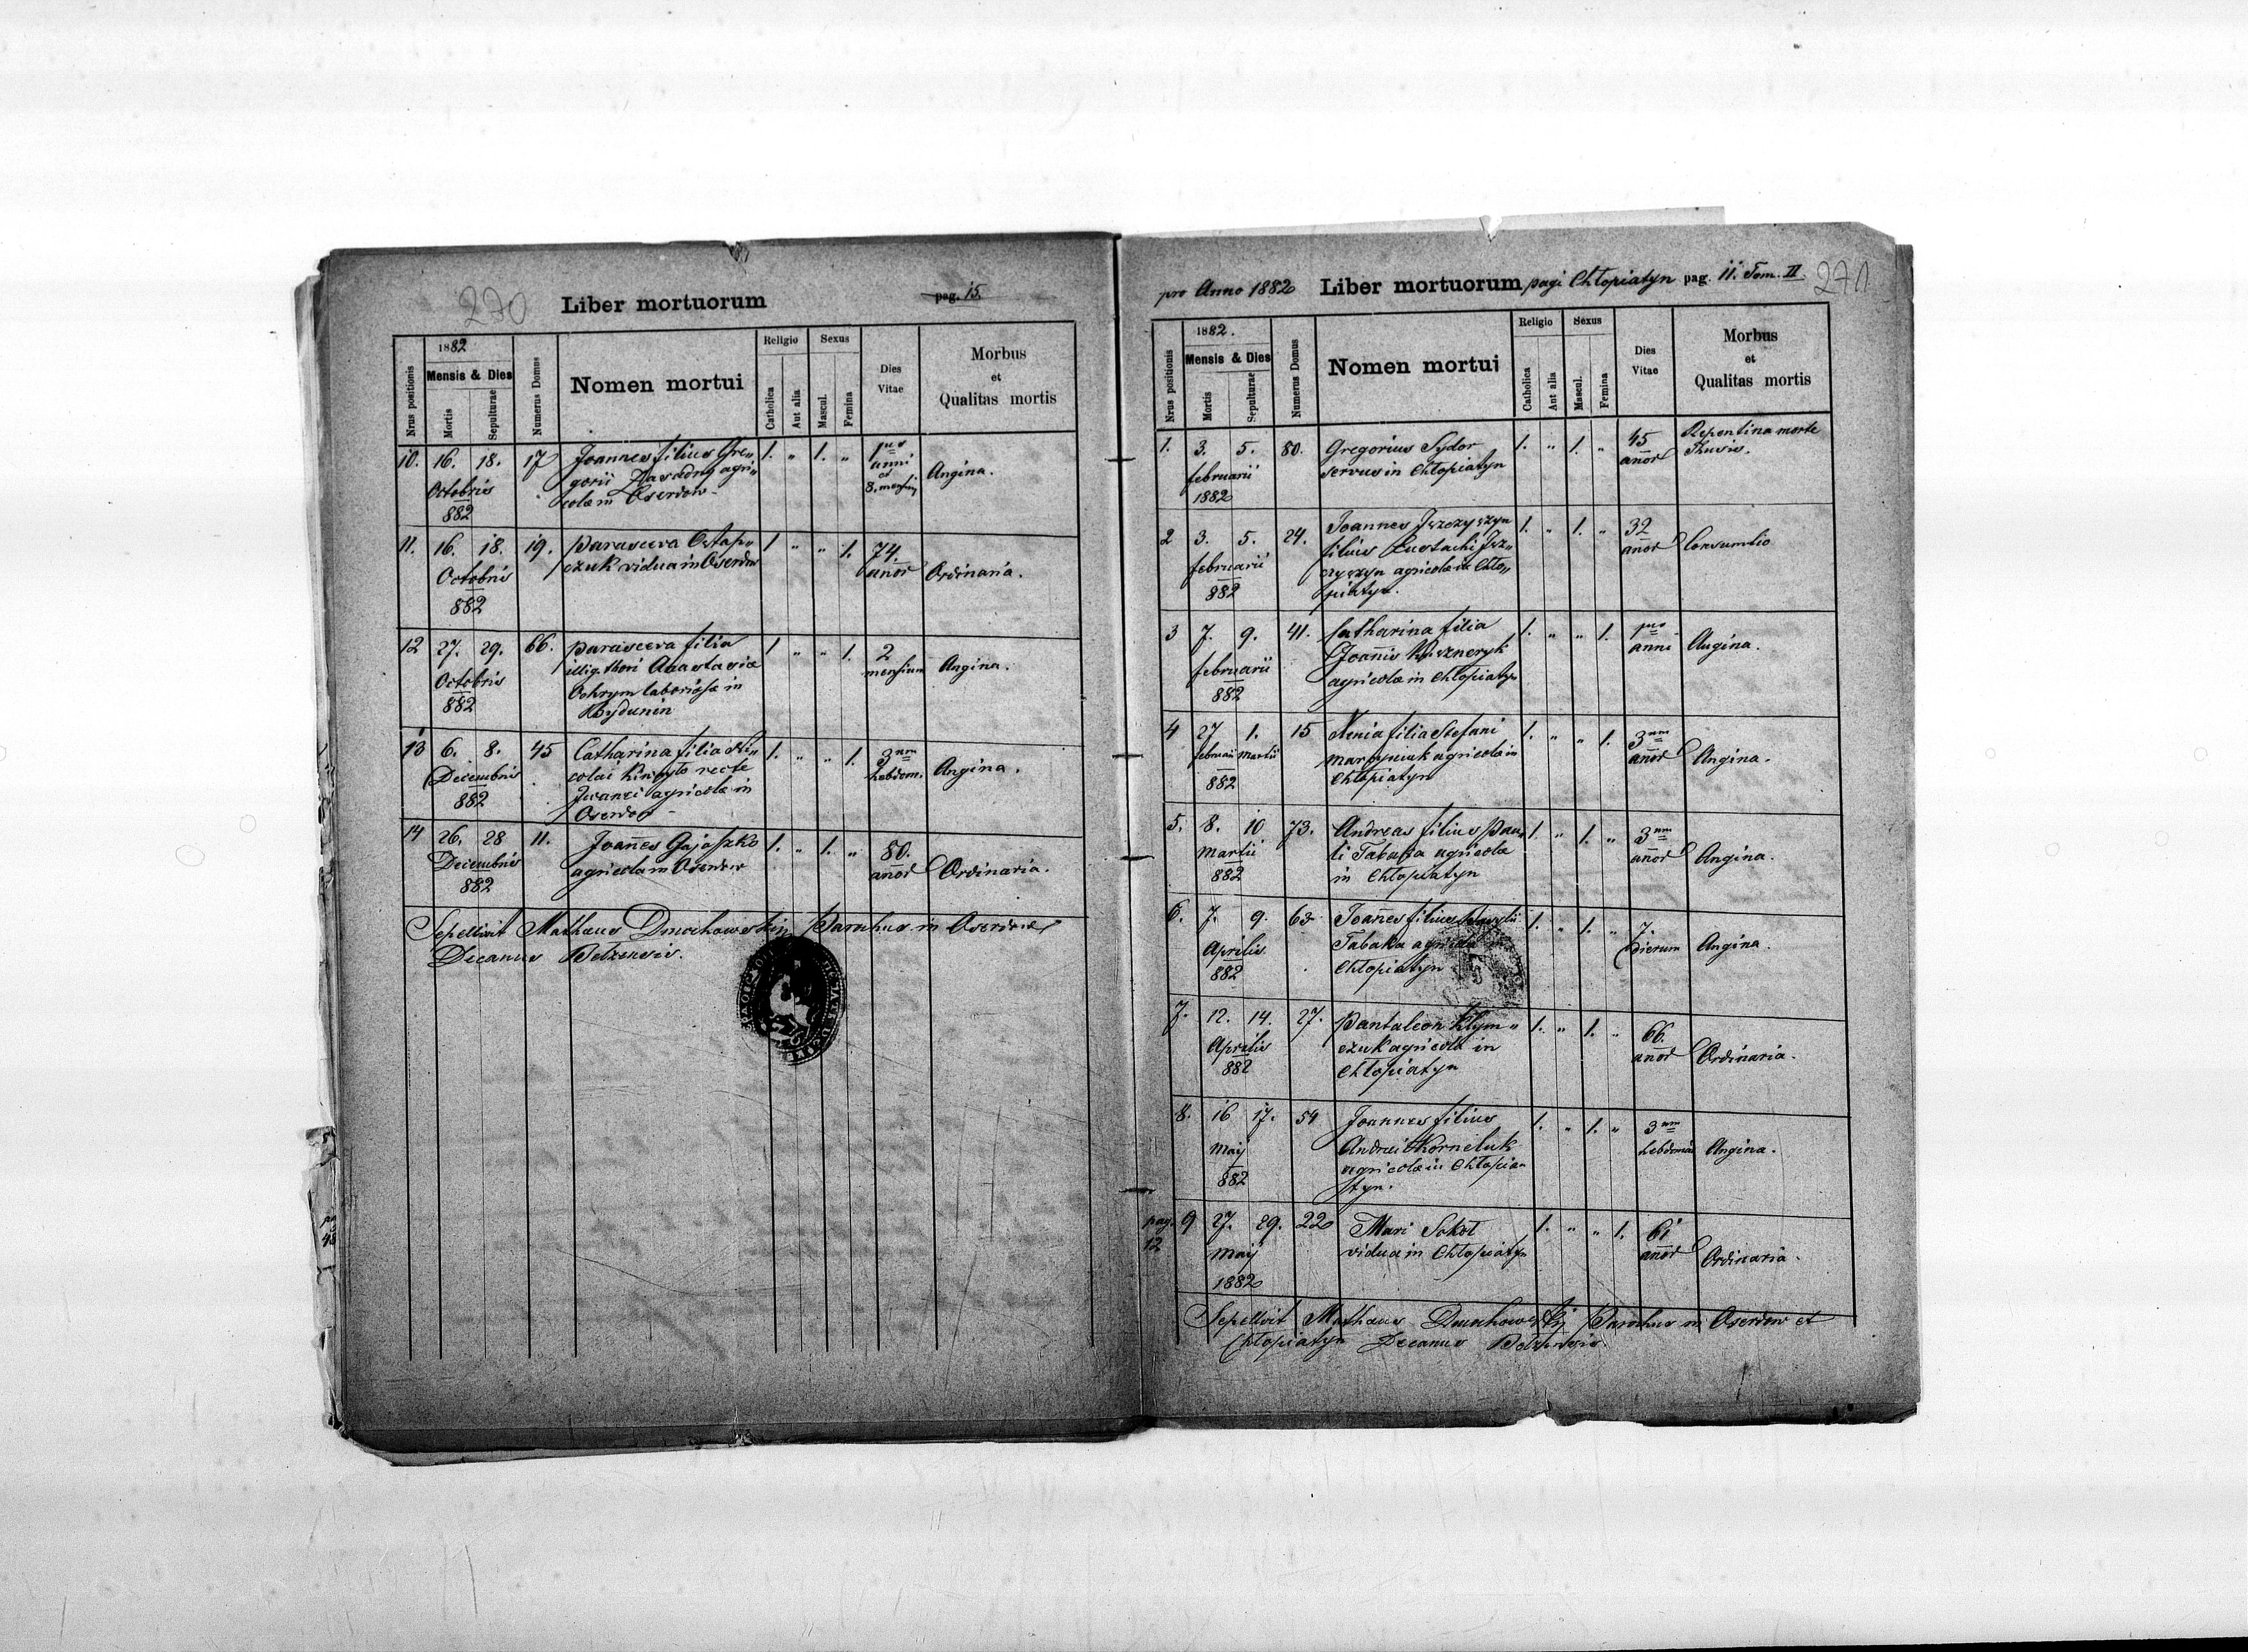 270
Liber mortuorum
pag. 15.
Nrus positionis
1882
Mensis & Dies
Mortis
Sepulturae
Numerus Domus
Nomen mortui
Religio
Catholica
Aut alia
Sexus
Mascul.
Femina
Dies
Vitae
Morbus
et
Qualitas mortis
10. 16. 18. 17 Joannes filius Gre„ 1. „ 1. „ 1 ius
Octobris gorii Zasadny agri„ anni Angina.
882 colæ in Oserdow et
8. mensium
11. 16. 18. 19. Parasceva Ostap„ 1 „ „ 1. 74.
Octobris czuk vidua in Oserdow anor Ordinaria.
882
12 27. 29. 66. Parasceva filia 1 „ „ 1. 2
Octobris illig. thori Anastasiæ mensium Angina.
882 Ochrym laboriosæ in
13 6. 8. 45 Catharina filia Ni„ 1. „ „ 1. 3 um
Decembris colai recte hebdom. Angina.
882 agricolæ in
Oserdow
14 26. 28 11. Joañes Gajoszko 1. „ 1. „ 80.
Decembris agricola in Oserdow anor Ordinaria.
882
Sepelivit Mathaeus Dmochowskij Parochus in Oserdow
Decanus Belzensis.
pro Anno 1882 Liber mortuorum pagi Chłopiatyn pag. 11. Tom. II.
271
Nrus positionis
1882.
Mensis & Dies
Mortis
Sepulturae
Numerus Domus
Nomen mortui
Religio
Catholica
Aut alia
Sexus
Mascul.
Femina
Dies
Vitae
Morbus
et
Qualitas mortis
1. 3. 5. 80. Gregorius Sydor 1. „ 1. „ 45 Repentina morte
februarii servus in Chłopiatyn anor
1882
2 3. 5. 24. Joannes Iszczyszyn 1. „ 1. „ 32
februarii filius Eustachi Isz„ anor Consumtio
882 czyszyn agricolæ in Chło„
piatyn.
3 7. 9. 41. Catharina filia 1. „ „ 1. 1 ius
februarii Joañis Kuszneryk anni Angina.
882 agricolæ in Chłopiatyn
4 27 1. 15 Xenia filia Stefani 1. „ „ 1. 3 um
februarii Martii agricolæ in anor Angina.
882 Chłopiatyn
5. 8. 10 73. Andreas filius Pau„ 1. „ 1. „ 3 um
Martii li Tabaka agricolæ anor Angina.
882 in Chłopiatyn
6. 7. 9. 63 Joañes filius 1. „ 1. „ 7.
Aprilis Tabaka agricolæ dierum Angina.
882 Chłopiatyn
7. 12. 14. 27. Pantaleon Klym„ 1. „ 1. „ 66.
Aprilis czuk agricola in anor Ordinaria.
882 Chłopiatyn
8. 16 17. 54 Joannes filius 1. „ 1. „ 3 um
Maij Andrei Korneluk Angina.
882 agricolæ in Chłopia„
tyn.
pag. 12 9 27. 29. 22 Mari Sokoł 1. „ „ 1. 61
Maij vidua in Chłopiatyn anor Ordinaria.
1882
Sepelivit Mathaeus Dmochowskij Parochus in Oserdow et
Chłopiatyn Decanus Belzensis.